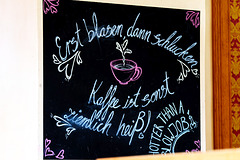 Erst blasen, dann schlucken
Kaffee ist sonst
ziemlich heiß!
HOTTER THAN A